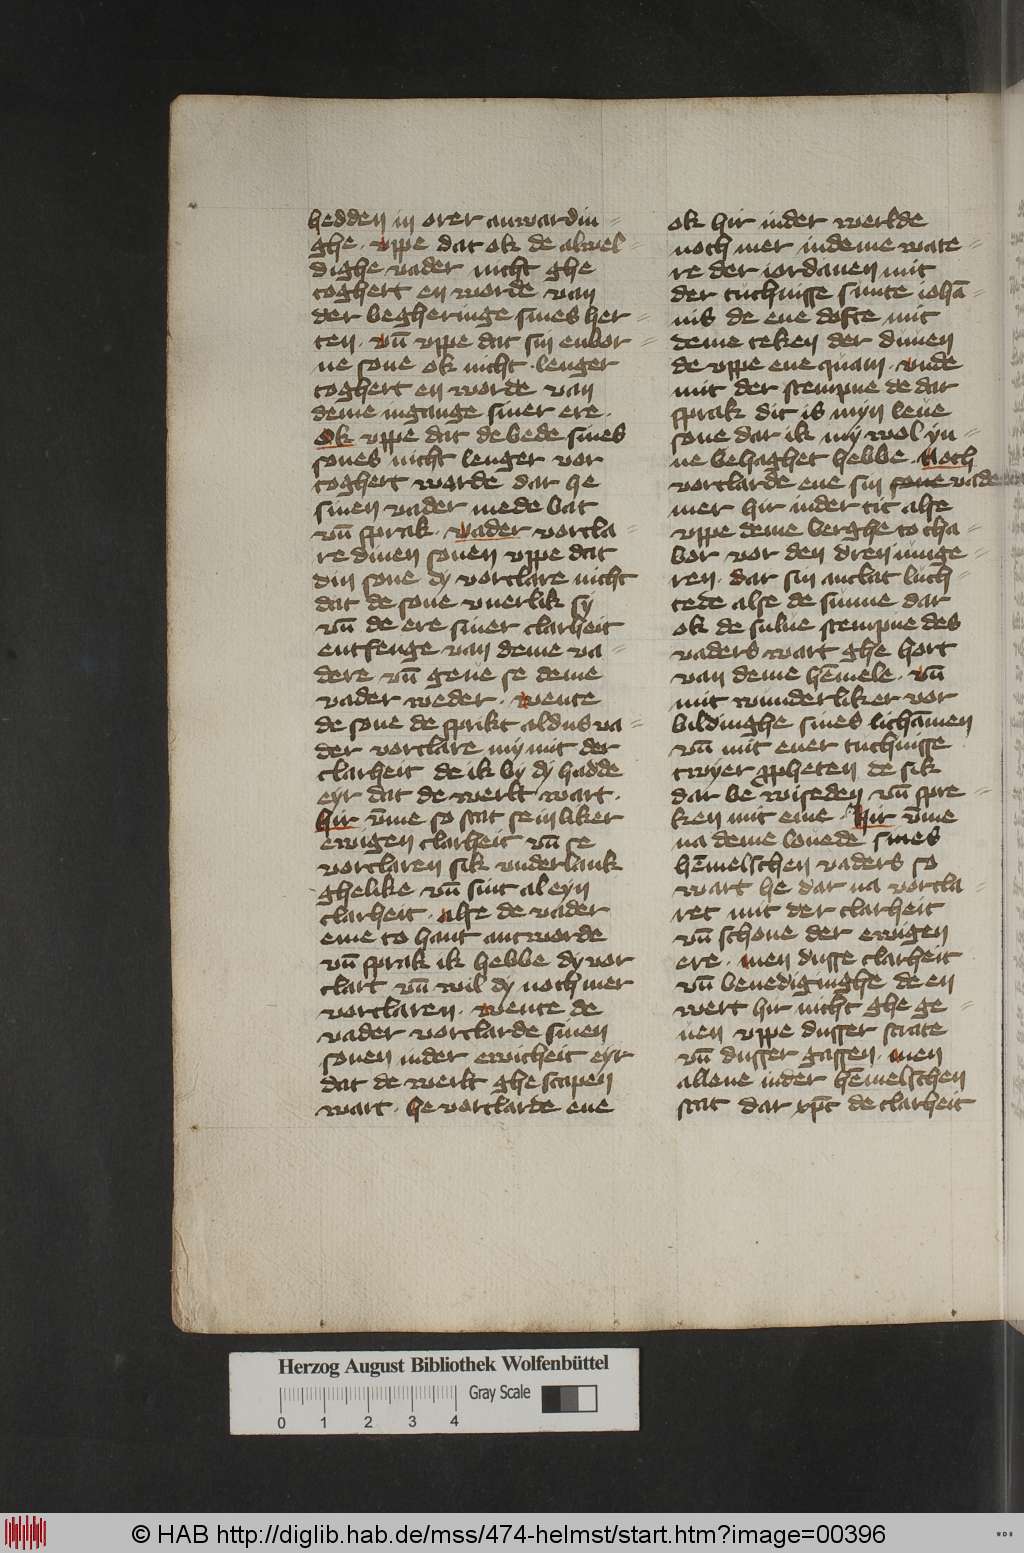 hedden in orer anwardin=
ghe · vppe dat ok de alwel=
dighe vader nicht ghe
toghert en worde van
der begheringe sines her=
ten · vn̄ vppe dat sin enbor=
ne sone ok nicht · lenger
toghert en worde van
deme ingange siner ere ·
Ok vppe dat de bede sines
sones nicht lenger vor
toghert worde dar he
sinen vader mede bat
vn̄ sprak · vader vorcla=
re dinen sonen vppe dat
din sone dy vorclare nicht
dat de sone vnerlik sy
vn̄ de ere siner clarheit
entfenge van deme va=
dere vn̄ geue se deme
vader weder · wente
de sone de sprikt aldus va=
der vorclare my mit der
clarheit de ik by dy hadde
eyr dat de werlt wart ·
hir v̄me so scat se in liker
ewigen clarheit vn̄ se
vorclaren sik vnderlank
ghelike vn̄ sint al eyn
clarheit · alse de vader
eme to hant antworde
vn̄ sprak ik hebbe dy vor
clart vn̄ wil dy noch mer
vorclaren · wente de
vader vorclarde sinen
sonen inder ewicheit eyr
dat de werlt ghe scapen
wart · he vorclarde ene
ok hir inder werlde
noch mer in deme wate=
re der iordanen mit
der tuchnisse sunte iohā=
nis de ene dofte mit
deme teken der duuen
de vppe ene quam · vnde
mit der stempne de dar
sprak dit is myn leue
sone dar ik my wol yn=
ne behaghet hebbe · Noch
vorclarde ene sin sone vader
mer hir inder tit alse
vppe deme berghe to tha=
bor vor den dren iunge=
ren · dar sin antlat luch=
tede alse de sunne dar
ok de sulue stempne des
vaders wart ghe hort
van deme hēmele · vn̄
mit wunderliker vor
bildinghe sines lichāmen
vn̄ mit ener tuchnisse
twyer ꝓpheten de sik
dar be wiseden vn̄ spre=
ken mit eme · hir v̄me
na deme louede sines
hēmelschen vaders so
wart he dar na vorcla=
ret mit der clarheit
vn̄ schone der ewigen
ere · men dusse clarheit
vn̄ benediginghe de en
wert hir nicht ghe ge=
uen vppe dusser strate
vn̄ dusser gassen · men
allene inder hēmelschen
stat dar xp̄c de clarheit
Herzog August Bibliothek Wolfenbüttel
0 1 2 3 4 Gray Scale
© HAB http://diglib.hab.de/mss/474-helmst/start.htm?image=00396